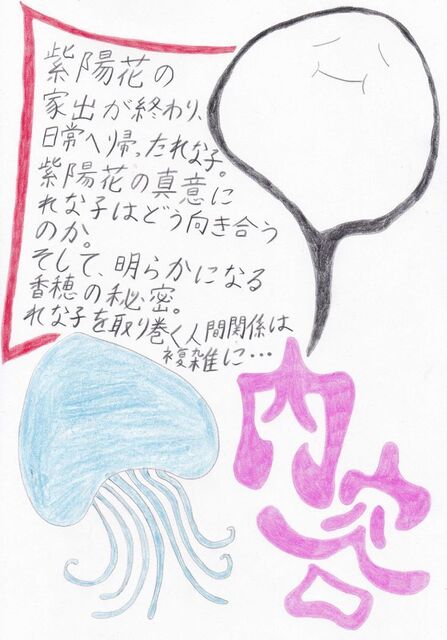 紫陽花の
家出が終わり、
日常へ帰ったれな子。
紫陽花の真意に
れな子はどう向き合う
のか。
そして、明らかになる
香穂の秘密。
れな子を取り巻く人間関係は
複雑に…
内容